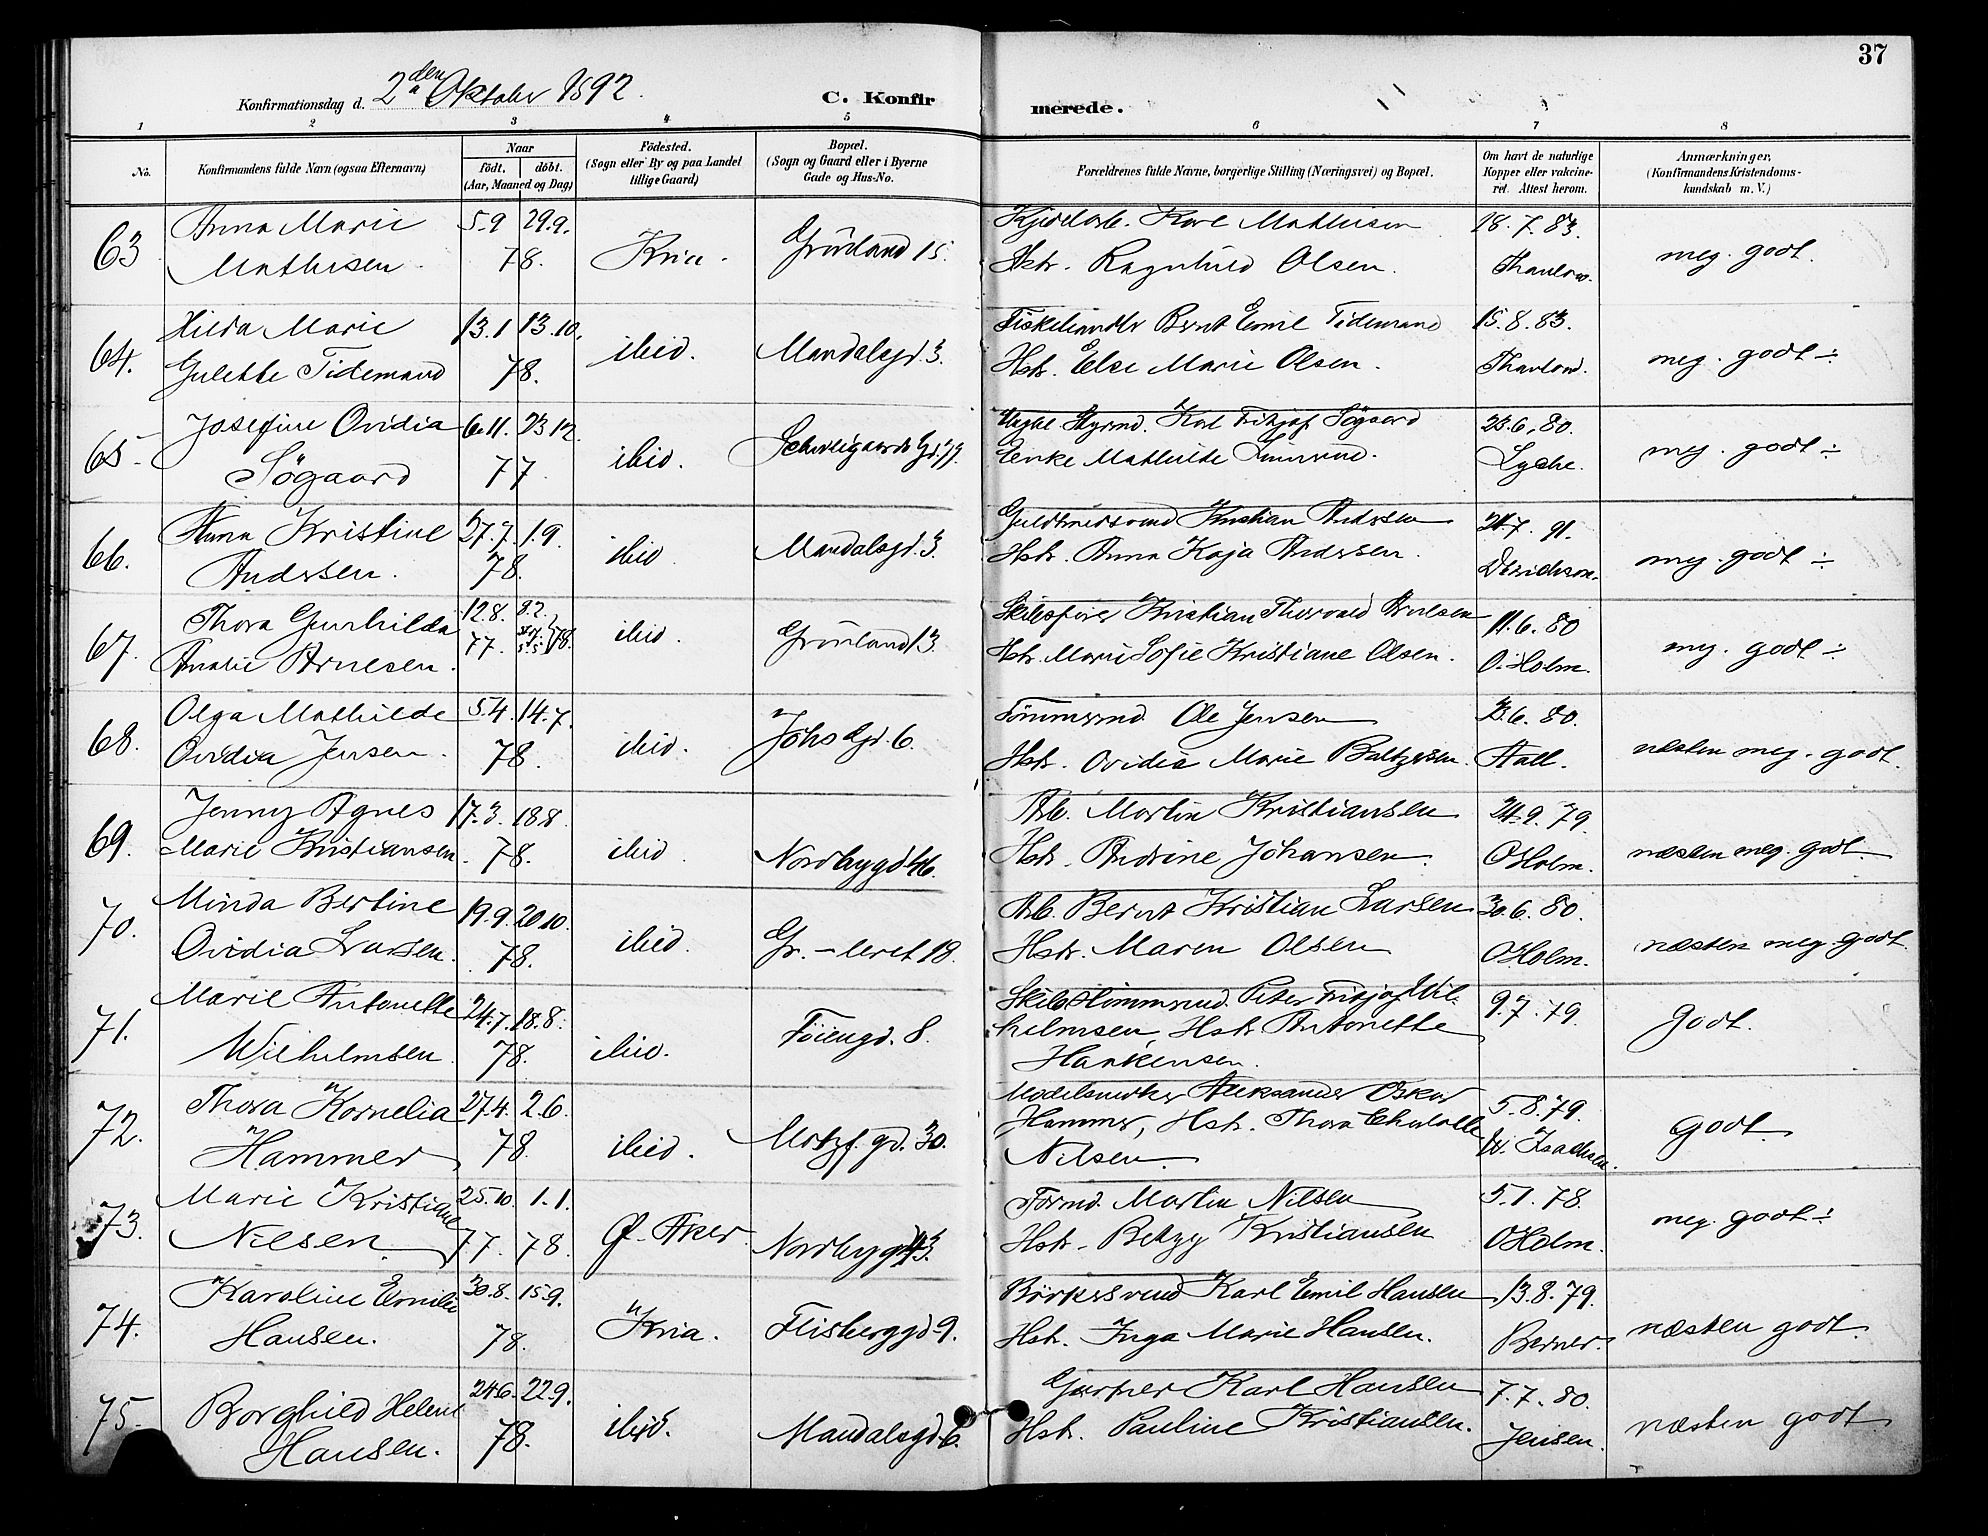 37
Konfirmationsdag d. 2den Oktober 1892.
C. Konfirmerede.
1 2 3 4 5 6 7 8
No. Konfirmandens fulde Navn (ogsaa Efternavn) Naar födt. döbt. (Aar, Maaned og Dag) Födested. (Sogn eller By og paa Landet tillige Gaard) Bopæl. (Sogn og Gaard eller i Byerne Gade og Hus-No. Forældrenes fulde Navne, borgerlige Stilling (Næringsvei) og Bopæl. Om havt de naturlige Kopper eller vaccineret. Attest herom. Anmærkninger, (Konfirmandens Kristendomskundskab m. V.)
63 Anna Marie 5.9 29.9. Karl Mathisen 18.7.83.
Mathisen. 78. Kria. Grönland 15. Hstr. Ragnhild Olsen. Thaulow. meg. godt.
64. Hilda Marie 13.1 13.10. Fiskehandler Bernt Emil Tidemand 15.8.83.
Gulette Tidemand 78. ibid. Mandalsgd. 3. Hstr. Else Marie Olsen. Thaulow. meg. godt ÷
65. Josefine Ovidia 6.11. 23.12. Karl Fritjof Sögaard 23.6.80.
Sögaard 77. ibid. Schweigaards Gd. 79. Enke Mathilde Lyche. meg. godt ÷
66. Anna Kristine 27.7. 1.9. Guldsmedsvend Kristian Andersen 21.7.91.
Andersen. 78. ibid. Mandalsgd. 3. Hstr. Anna Kaja Andersen. meg. godt ÷
67. Thora Gunhilda 12.8. 8.2. Skibsförer Kristian Thorvald Arnesen 11.6.80
Amalie Arnesen. 77. 78. ibid. Grönland 13. Hstr. Marie Sofie Kristiane Olsen. O. Holm. meg. godt ÷
68. Olga Mathilde 5.4. 14.7. Tömmermd. Ole Jensen 23.6.80.
Ovidia Jensen. 78. ibid. Johs Gd. 6. Hstr. Ovidia Marie Baltzersen. Hall. næsten meg. godt.
69. Jenny Agnes 17.3. 18.8. Arb. Martin Kristiansen 24.9.79.
Marie Kristiansen. 78. ibid. Nordbygd 46. Hstr. Andrine Johansen. O Holm. næsten meg. godt.
70. Minda Bertine 19.9. 20.10. Arb. Bernt Kristian Larsen 30.6.80.
Ovidia Larsen. 78. ibid. Gr.-leret 18. Hstr. Maren Olsen O Holm. næsten meg. godt.
71. Marie Antonette 24.7. 18.8. Skibstömmermd. Peter Fritjof Wil- 9.7.79.
Wilhelmsen. 78. ibid. Töiengd. 8. helmsen, Hstr. Antonette Godt.
Haakensen.
72. Thora Kornelia 27.4. 2.6. Modelsnedker Aleksander Oskar 5.8.79.
Hammer 78. ibid. Motzf. gd. 30. Hammer, Hstr. Thora Charlotte W. Isachsen. Godt
Nilsen.
73. Marie Kristiane 25.10 1.1. Formd. Martin Nilsen 5.1.78.
Nilsen 77. 78. Ø. Aker Nordbygd 43. Hstr. Betzy Kristiansen O Holm. meg. godt ÷
74. Karoline Emilie 30.8. 15.9. Karl Emil Hansen 13.8.79.
Hansen. 78. Kria. Flisberggd. 9. Hstr. Inga Marie Hansen. Berner. næsten godt.
75. Borghild Helene 24.6. 22.9. Gartner Karl Hansen 7.7.80.
Hansen. 78. ibid. Mandalsgd. 6. Hstr. Pauline Kristiansen. Jensen. næsten godt